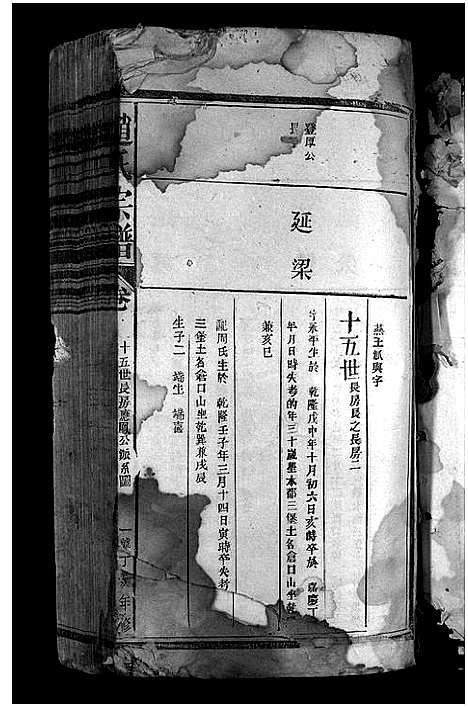 燕土試與字
十五世長房長之長房二
登厚公長
延梁
字永平生於 乾隆戊申年十月初六日亥時卒於 嘉慶丁
年月日時失考的年三十歲墨本都三堡土名倉口山坐乾
兼亥巳
配周氏生於 乾隆壬子年三月十四日寅時卒失考
三堡土名倉口山坐乾巽兼戌辰
生子二 端生 端喜
趙氏宗譜 卷 十五世長房應鳳公派系圖 一 丁 年修